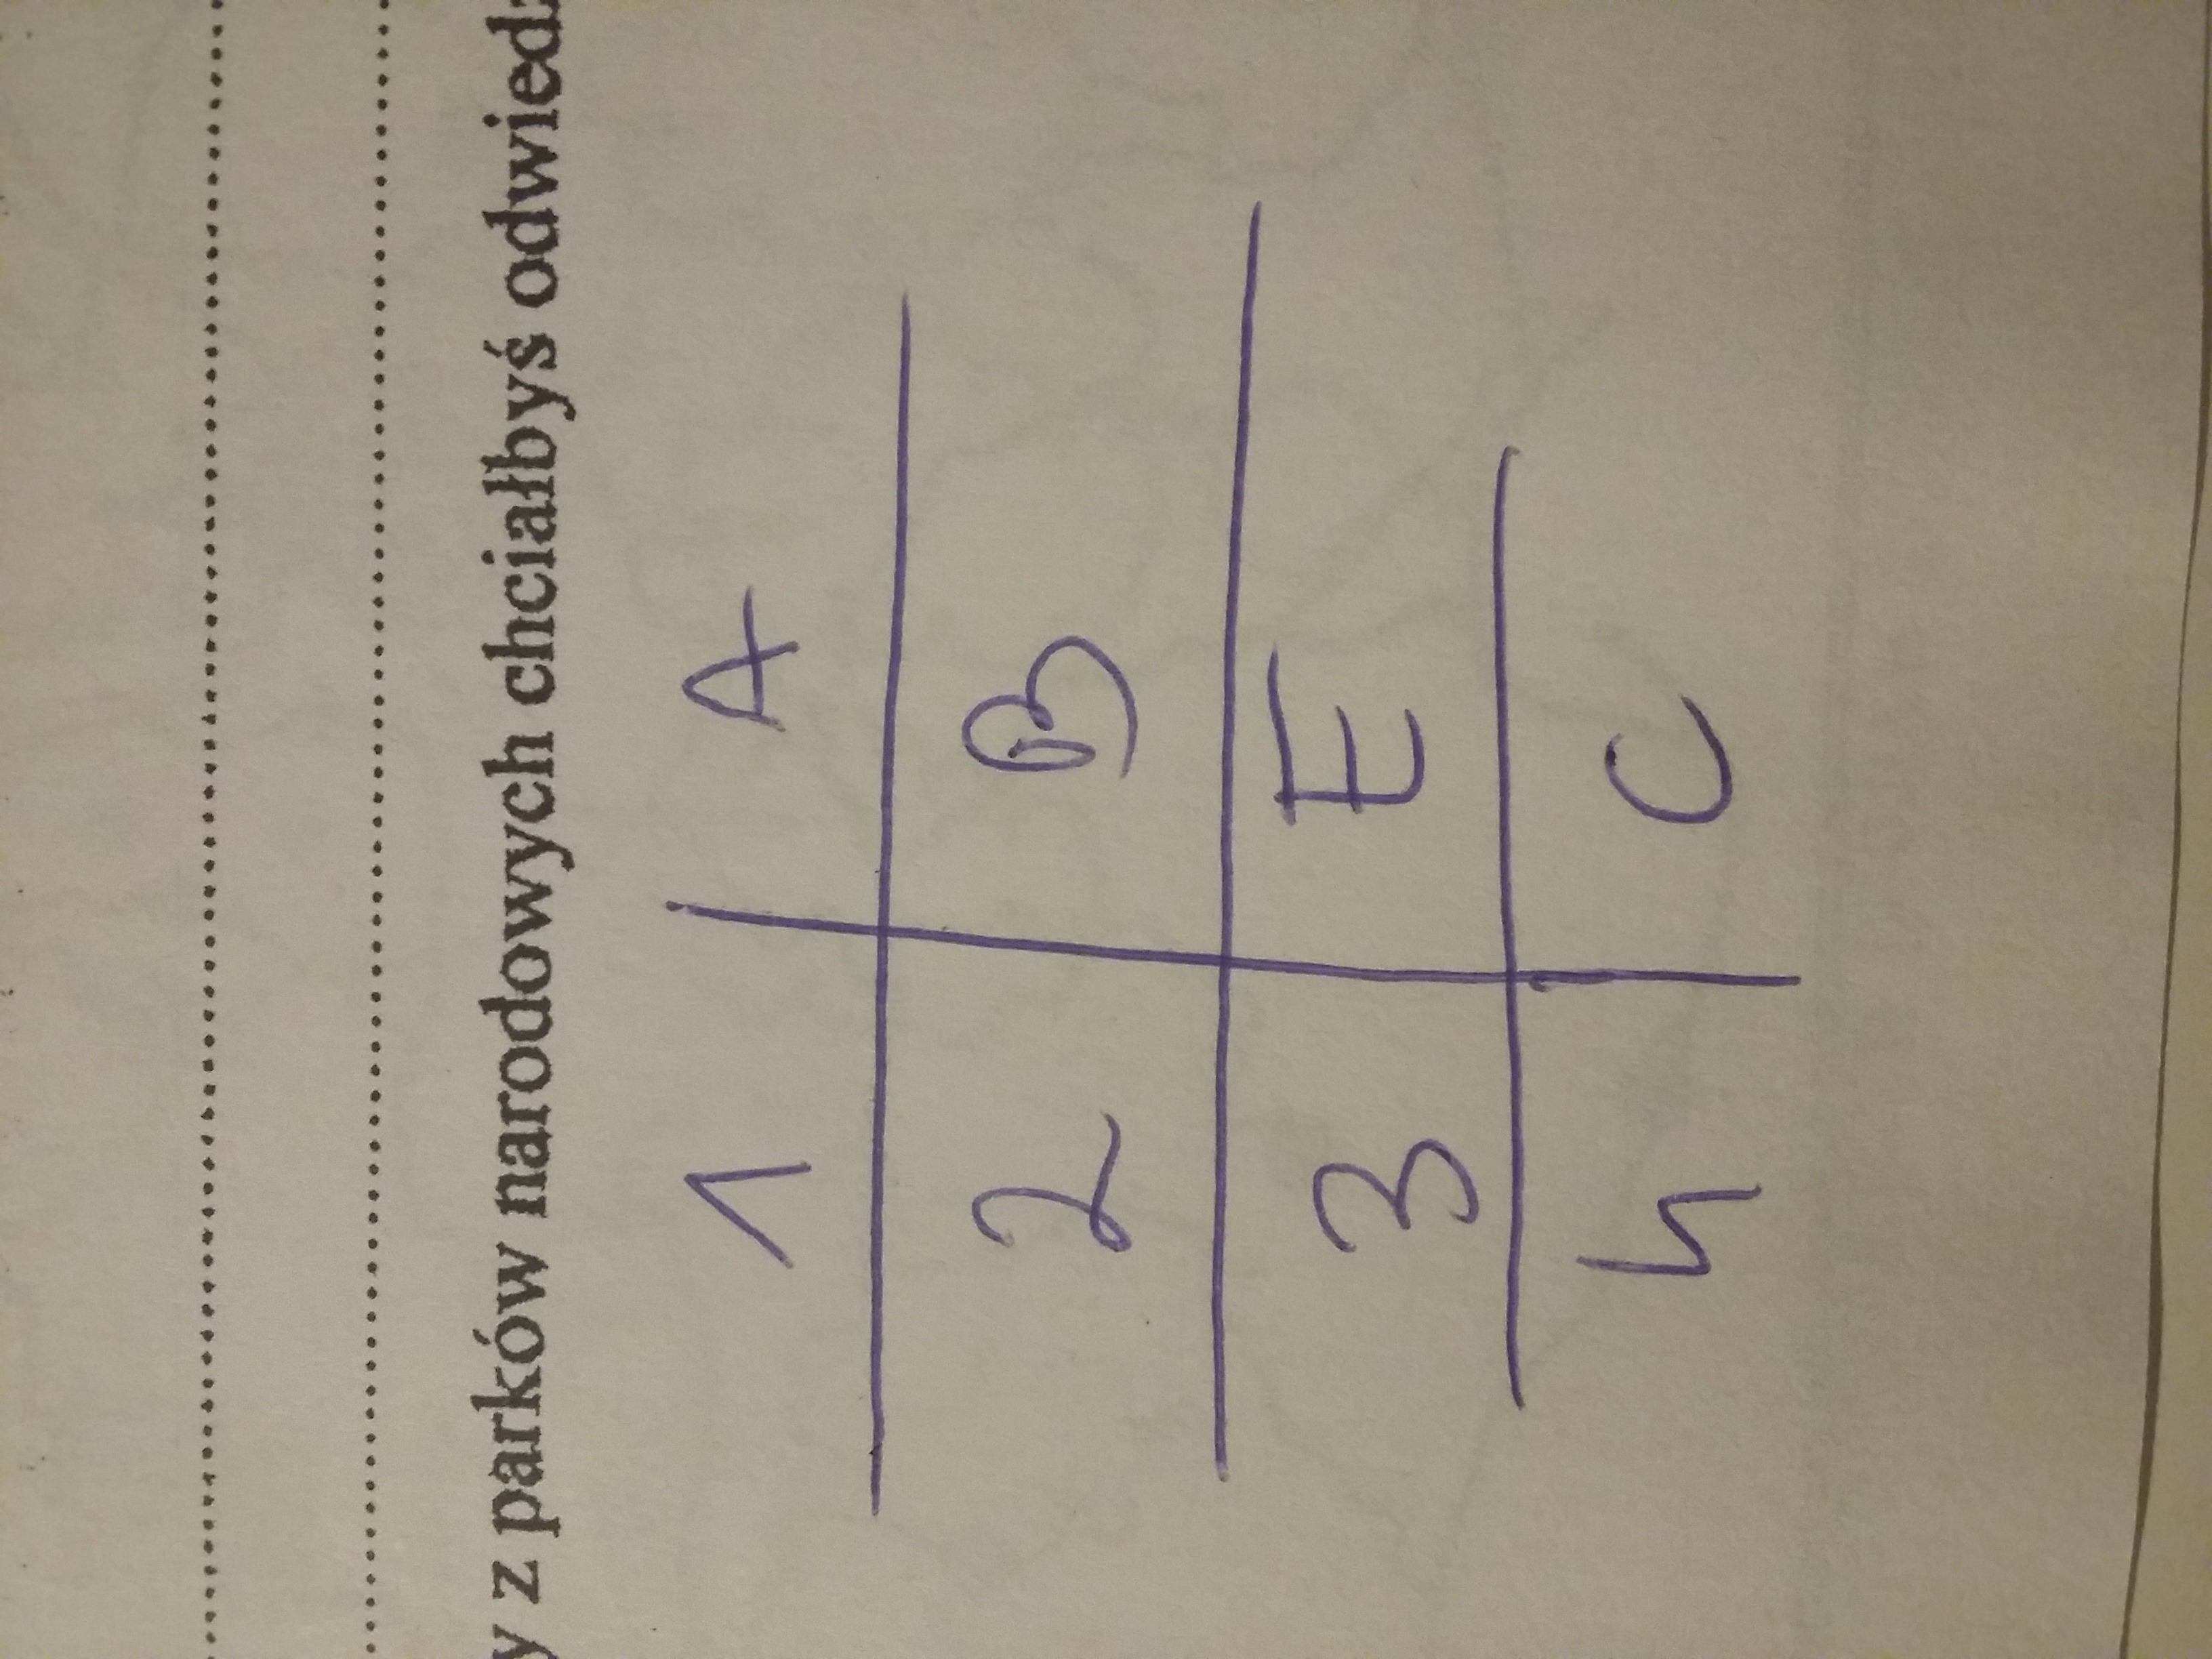 y z parków narodowych chciałbyś odwiedz
1 A
2 B
3 E
4 C